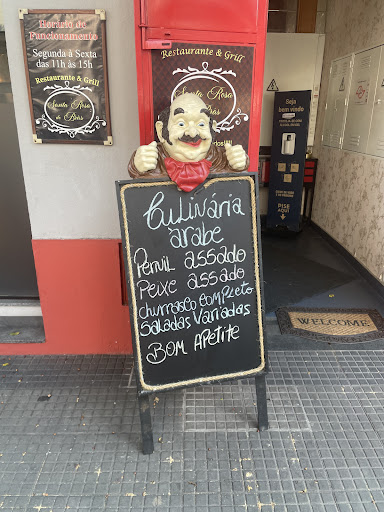 Horário de
Funcionamento
Segunda à Sexta
das 11h às 15h
Restaurante & Grill
Santa Rosa
do Brás
Restaurante & Grill
Santa Rosa
do Brás
Seja
bem vindo
PISE
AQUI
WELCOME
Culinária
arabe
Pernil assado
Peixe assado
churrasco completo
Saladas Variadas
Bom Apetite